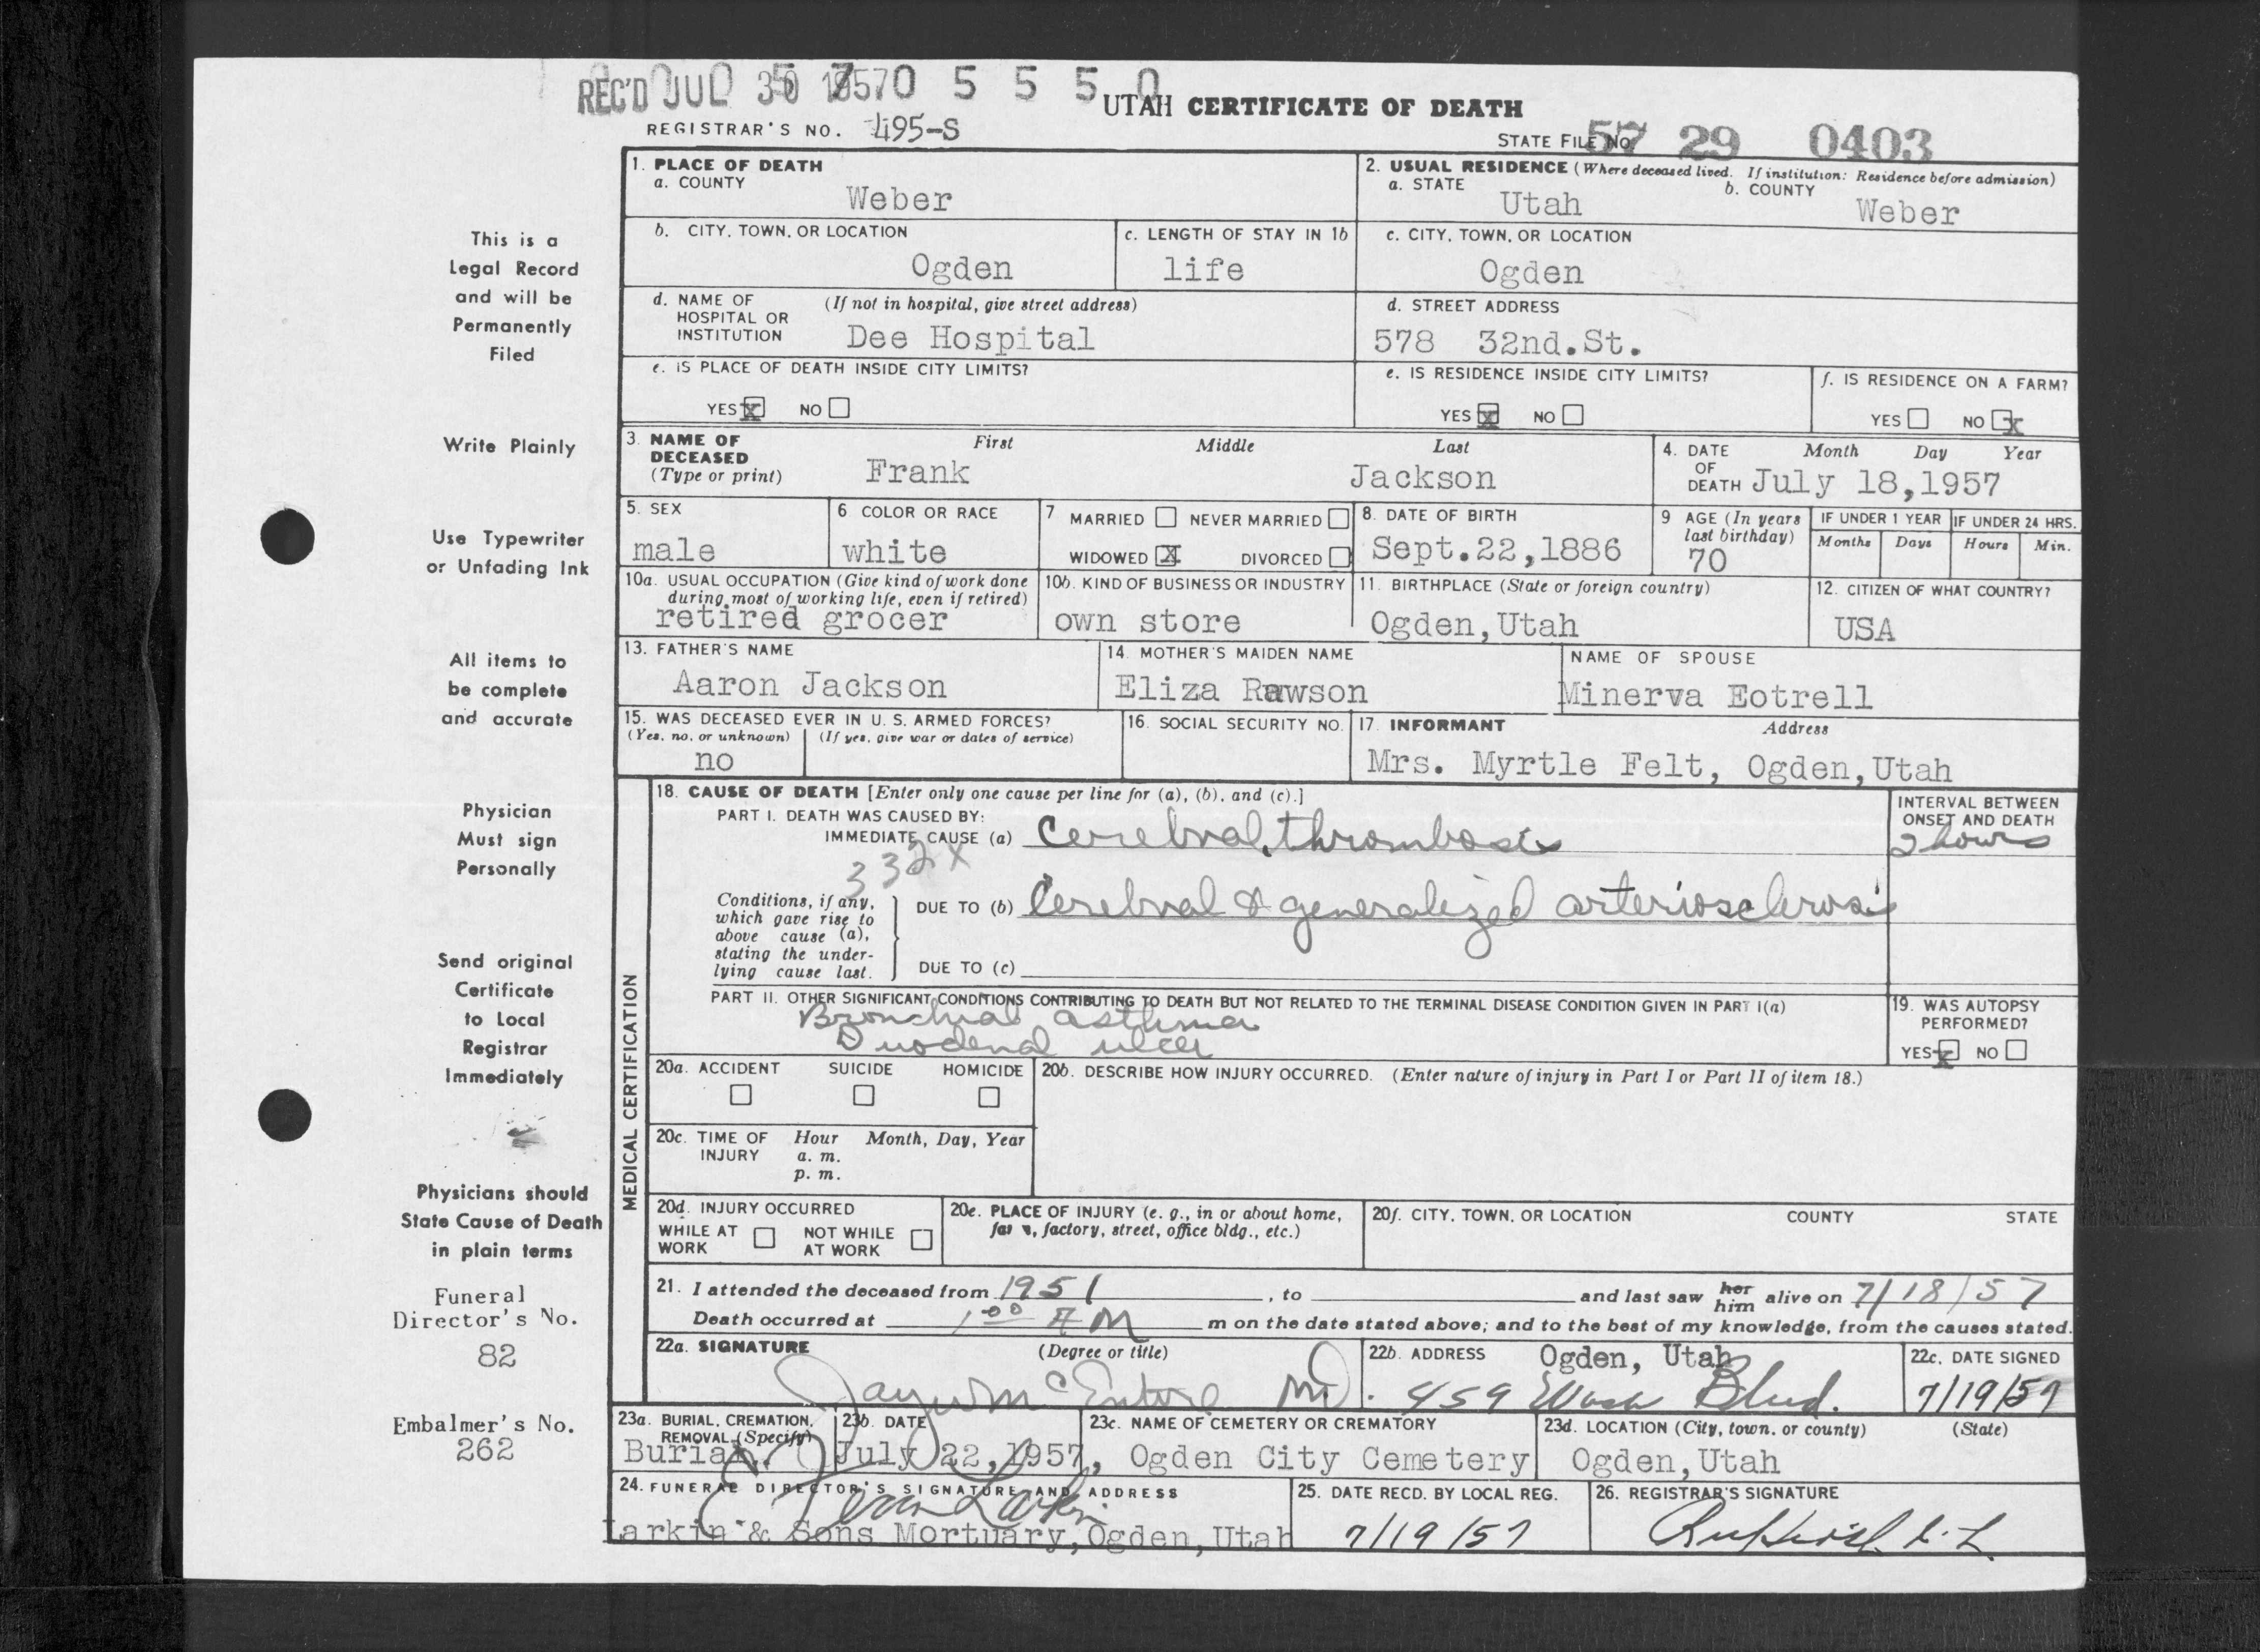 REC'D JUL 30 1957 0 5 5 5 0
UTAH CERTIFICATE OF DEATH
REGISTRAR'S NO. 495-S
STATE FILE NO. 57 29 0403
1. PLACE OF DEATH
a. COUNTY
Weber
2. USUAL RESIDENCE (Where deceased lived. If institution: Residence before admission)
a. STATE Utah b. COUNTY Weber
b. CITY, TOWN, OR LOCATION
Ogden
c. LENGTH OF STAY IN 1b
life
c. CITY, TOWN, OR LOCATION
Ogden
d. NAME OF HOSPITAL OR INSTITUTION (If not in hospital, give street address)
Dee Hospital
d. STREET ADDRESS
578 32nd.St.
e. IS PLACE OF DEATH INSIDE CITY LIMITS?
YES X NO
e. IS RESIDENCE INSIDE CITY LIMITS?
YES X NO
f. IS RESIDENCE ON A FARM?
YES NO X
3. NAME OF DECEASED (Type or print)
First Middle Last
Frank Jackson
4. DATE OF DEATH Month Day Year
July 18,1957
5. SEX
male
6 COLOR OR RACE
white
7 MARRIED NEVER MARRIED
WIDOWED X DIVORCED
8. DATE OF BIRTH
Sept.22,1886
9 AGE (In years last birthday)
70
IF UNDER 1 YEAR IF UNDER 24 HRS.
Months Days Hours Min.
10a. USUAL OCCUPATION (Give kind of work done during most of working life, even if retired)
retired grocer
10b. KIND OF BUSINESS OR INDUSTRY
own store
11. BIRTHPLACE (State or foreign country)
Ogden,Utah
12. CITIZEN OF WHAT COUNTRY?
USA
13. FATHER'S NAME
Aaron Jackson
14. MOTHER'S MAIDEN NAME
Eliza Rawson
NAME OF SPOUSE
Minerva Eotrell
15. WAS DECEASED EVER IN U. S. ARMED FORCES?
(Yes, no, or unknown) (If yes, give war or dates of service)
no
16. SOCIAL SECURITY NO.
17. INFORMANT Address
Mrs. Myrtle Felt, Ogden,Utah
MEDICAL CERTIFICATION
18. CAUSE OF DEATH [Enter only one cause per line for (a), (b), and (c).]
PART I. DEATH WAS CAUSED BY:
IMMEDIATE CAUSE (a) Cerebral thrombosis
332X
INTERVAL BETWEEN ONSET AND DEATH
2 hours
Conditions, if any, which gave rise to above cause (a), stating the underlying cause last.
DUE TO (b) Cerebral & generalized arteriosclerosis
DUE TO (c)
PART II. OTHER SIGNIFICANT CONDITIONS CONTRIBUTING TO DEATH BUT NOT RELATED TO THE TERMINAL DISEASE CONDITION GIVEN IN PART I(a)
Bronchial asthma
Duodenal ulcer
19. WAS AUTOPSY PERFORMED?
YES X NO
20a. ACCIDENT SUICIDE HOMICIDE
20b. DESCRIBE HOW INJURY OCCURRED. (Enter nature of injury in Part I or Part II of item 18.)
20c. TIME OF INJURY Hour Month, Day, Year
a. m.
p. m.
20d. INJURY OCCURRED
WHILE AT WORK NOT WHILE AT WORK
20e. PLACE OF INJURY (e. g., in or about home, farm, factory, street, office bldg., etc.)
20f. CITY, TOWN, OR LOCATION COUNTY STATE
21. I attended the deceased from 1951, to and last saw her him alive on 7/18/57
Death occurred at 1:00 AM m on the date stated above; and to the best of my knowledge, from the causes stated.
22a. SIGNATURE (Degree or title)
Jay W McEntire MD.
22b. ADDRESS Ogden, Utah
459 Wash Blvd.
22c. DATE SIGNED
7/19/57
23a. BURIAL, CREMATION, REMOVAL (Specify)
Burial
23b. DATE
July 22,1957,
23c. NAME OF CEMETERY OR CREMATORY
Ogden City Cemetery
23d. LOCATION (City, town, or county) (State)
Ogden,Utah
24. FUNERAL DIRECTOR'S SIGNATURE AND ADDRESS
Larkin
Larkin & Sons Mortuary,Ogden,Utah
25. DATE RECD. BY LOCAL REG.
7/19/57
26. REGISTRAR'S SIGNATURE
This is a
Legal Record
and will be
Permanently
Filed
Write Plainly
Use Typewriter
or Unfading Ink
All items to
be complete
and accurate
Physician
Must sign
Personally
Send original
Certificate
to Local
Registrar
Immediately
Physicians should
State Cause of Death
in plain terms
Funeral
Director's No.
82
Embalmer's No.
262